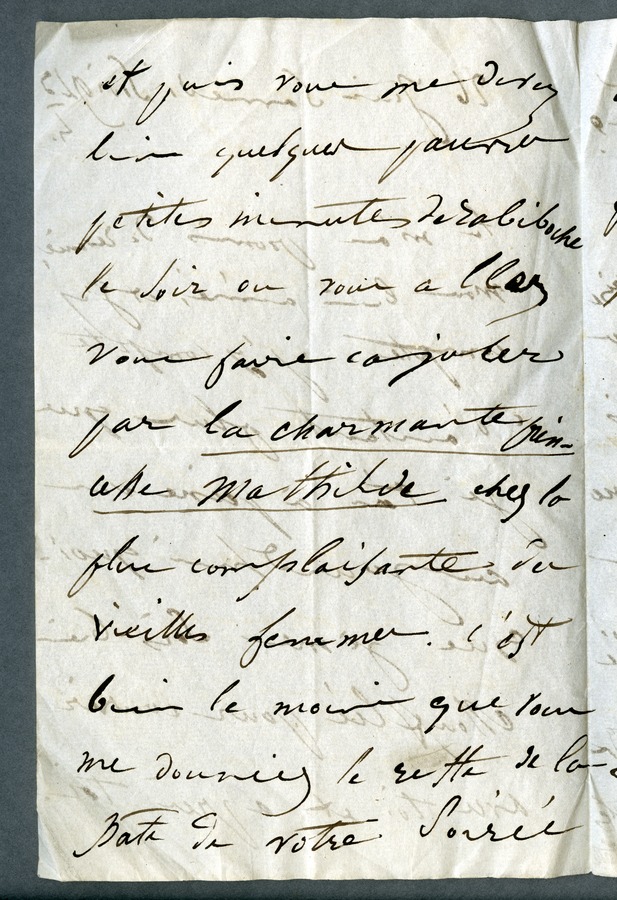 et puis vous me devez
bien quelques pauvres
petites minutes de rabiboche
le soir ou vous allez
vous faire cajoler
par la charmante prin-
cesse Mathilde chez la
plus complaisante des
vieilles femmes. c'est
bien le moins que vous
me donniez le reste de la
patte de votre soirée